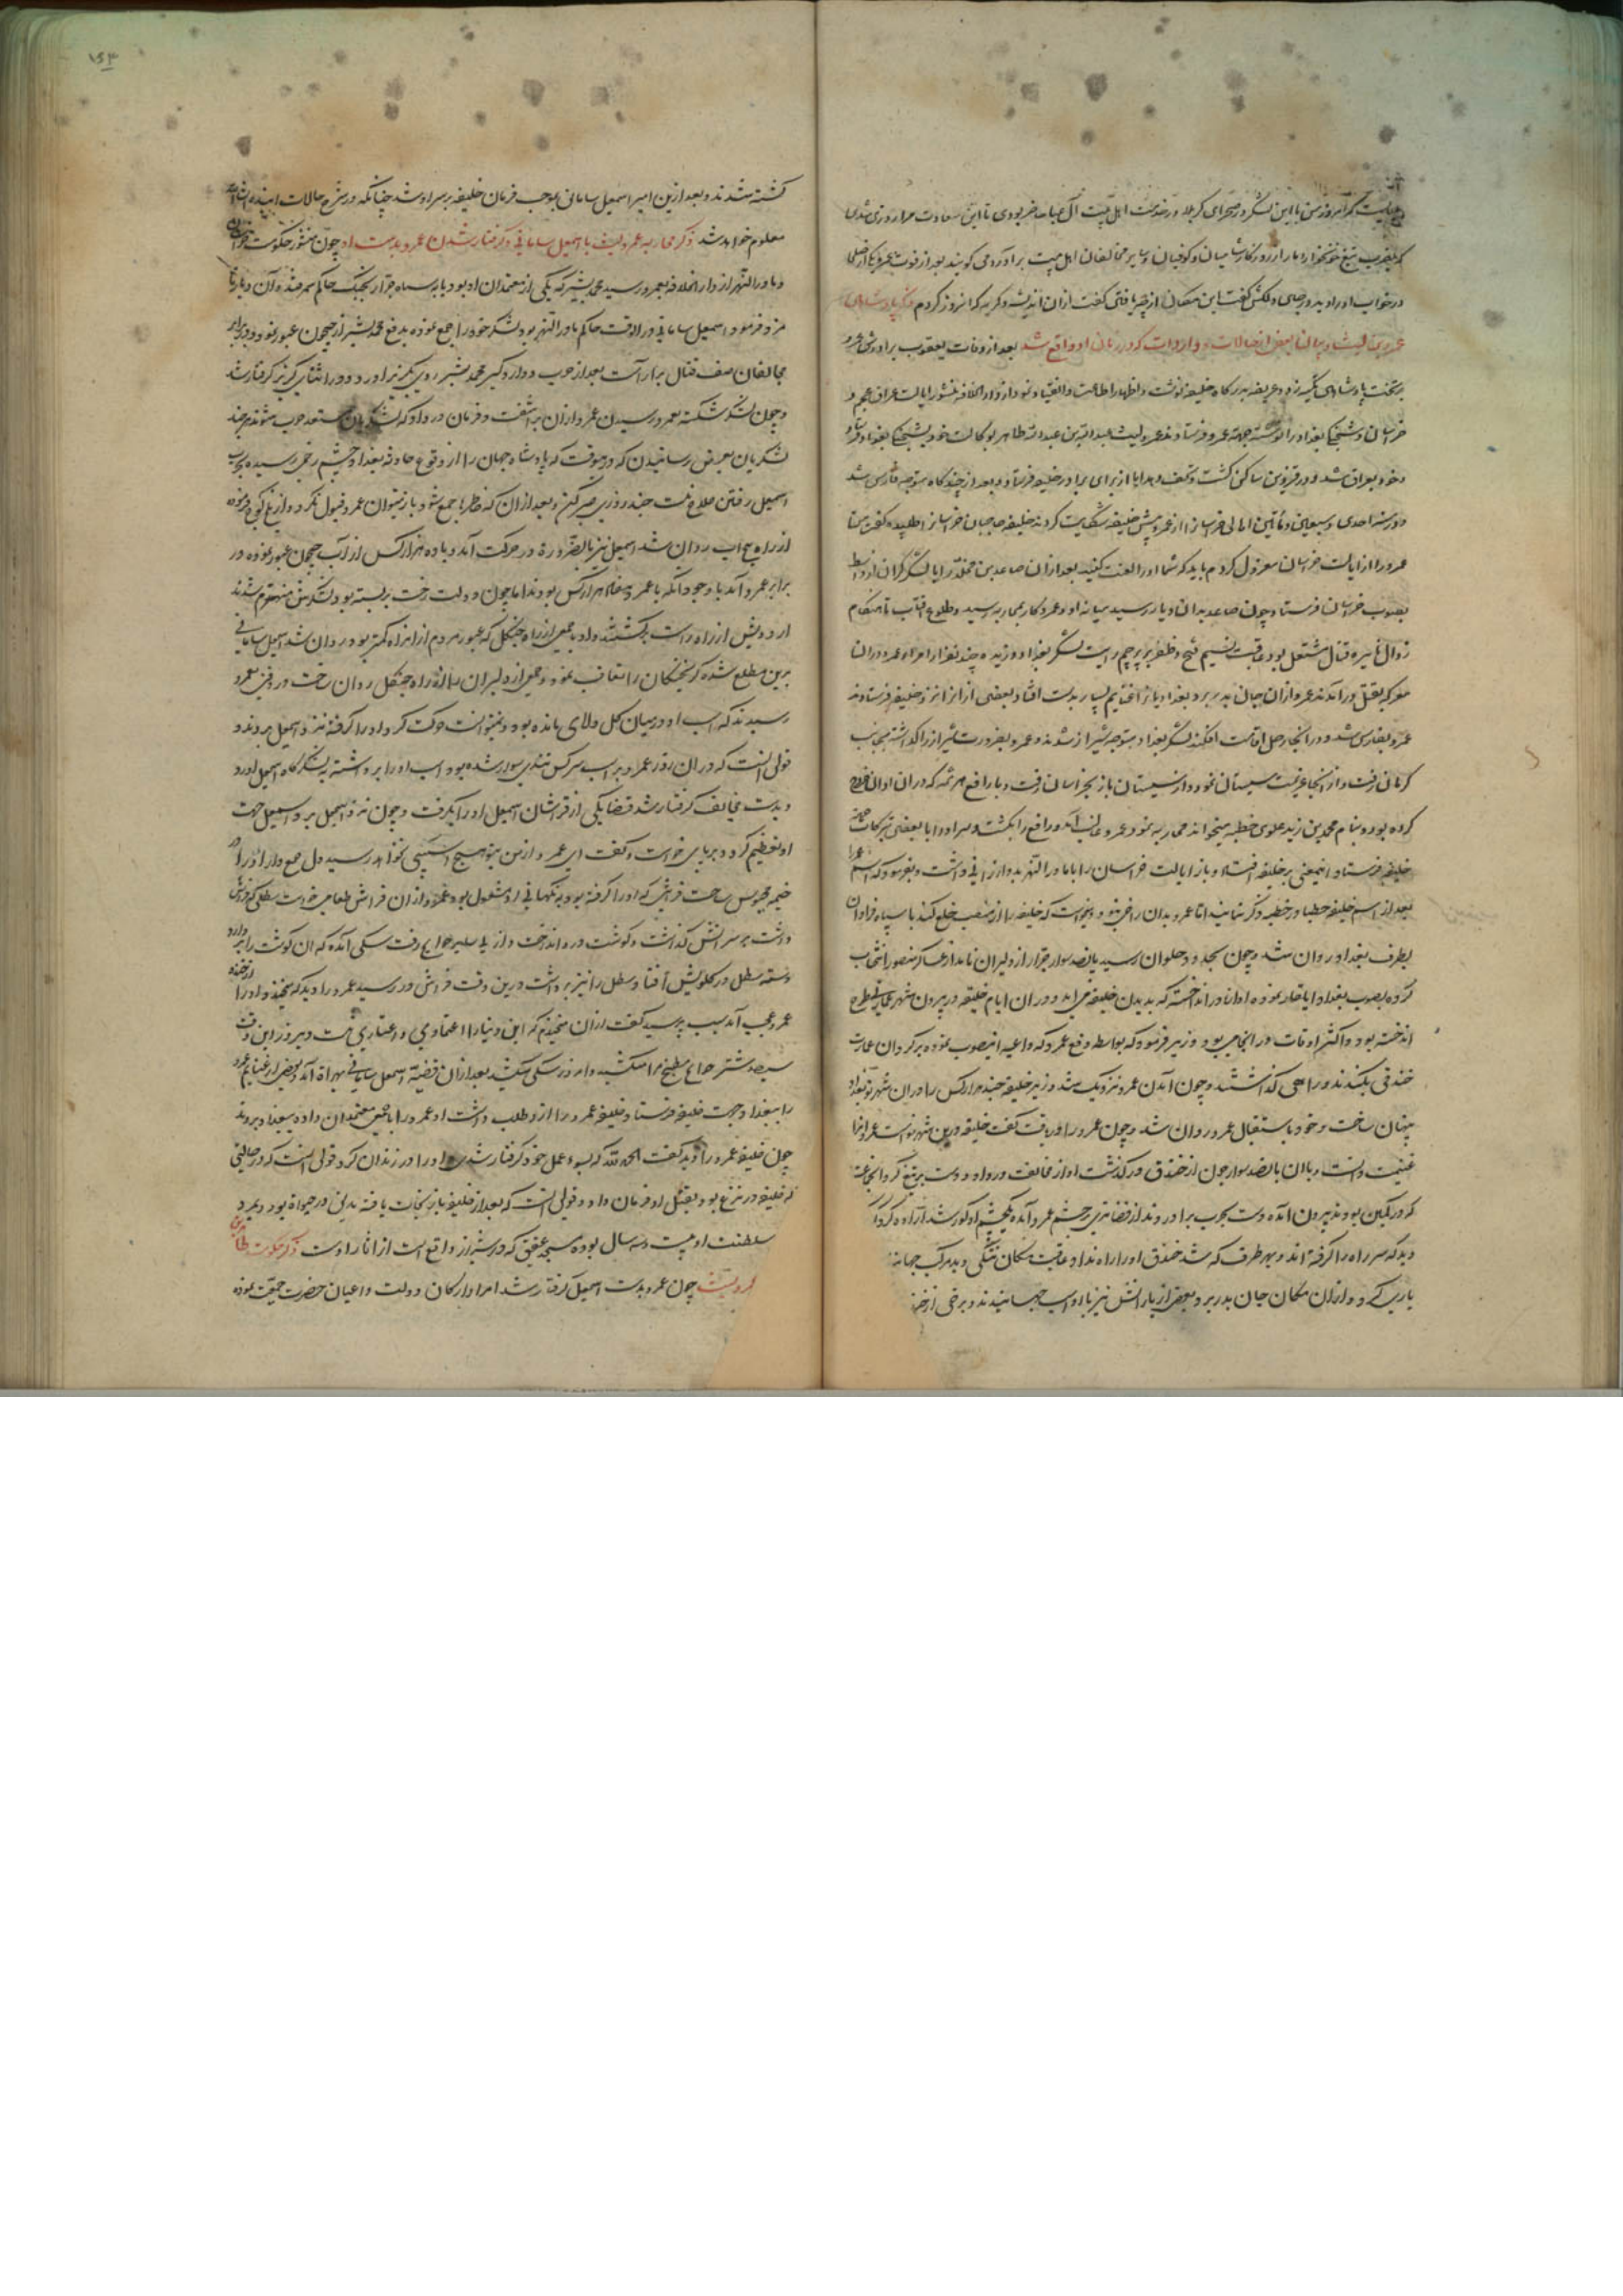 که آنروز من با این لشکر در صحرای کربلا در خدمت اهل بیت آل عبا حاضر بودی تا این سعادت مرا روزی شدی
که بضرب تیغ خونخوار دمار از روزکار شامیان و کوفیان و سایر مخالفان اهل بیت برآوردمی کویند بعد از فوت عمرو یکی از صلحا
در خواب او را دید در جای دلکش کفت این مکان از چه یافتی کفت از آن اندیشه و کریه که آنروز کردم ذکر پادشاهی
عمرو بن لیث و بیان بعضی از حالات و واردات که در زمان او واقع شد بعد از وفات یعقوب برادرش عمرو
بر تخت پادشاهی تکیه زد و عریضه بدرکاه خلیفه نوشت و اظهار اطاعت و انقیاد نمود از دار الخلافه منشور ایالت عراق عجم و
خراسان و شحنکی بغداد را نوشته جهة عمرو فرستادند عمرو لیث عبدالله بن عبدالله طاهر بوکالت خود بشحنکی بغداد فرستاد
و خود بعراق شد و در قزوین ساکن کشت و تحف و هدایا از برای برادر خلیفه فرستاد و بعد از چندکاه متوجه فارس شد
در سنه احدی و سبعین و مأتین اهالی خراسان از عمرو پیش خلیفه شکایت کردند خلیفه حاجیان خراسان را طلبیده کفت من
عمرو را از ایالت خراسان معزول کردم باید که شما او را لعنت کنید بعد از آن صاعد بن مخلد را با لشکر کران از واسط
بصوب خراسان فرستاد و چون صاعد بدان دیار رسید میانه او و عمرو کار بمحاربه رسید و طلوع آفتاب تا هنکام
زوال نایره قتال مشتعل بود عاقبت نسیم فتح و ظفر بر پرچم رایت لشکر بغداد وزیده چند نفر از امراء عمرو در آن
معرکه بقتل درآمدند عمرو از آن جان بدر برد بغدادیان را غنایم بسیار بدست افتاد بعضی از آنرا نزد خلیفه فرستادند
عمرو بفارس شد و در آنجا رحل اقامت افکند لشکر بغداد متوجه شیراز شدند و عمرو بضرورت شیراز را کذاشته بجانب
کرمان رفت و از آنجا عزیمت سیستان نمود و از سیستان باز بخراسان رفت و با رافع هرثمه که در آن اوان خروج
کرده بود و بنام محمد بن زید علوی خطبه میخواند محاربه نمود عمرو غالب آمد و رافع را بکشت و سر او را با بعضی تبرکات جهة
خلیفه فرستاد این معنی بر خلیفه و باز ایالت خراسان را با ماوراء النهر بدو ارزانی داشت و بفرمود که اسم عمرو را
بعد از اسم خلیفه خطبا در خطبه ذکر نمایند اما عمرو بدان راضی نبود و میخواست که خلیفه را از منصب خلع کند با سپاه فراوان
بطرف بغداد روان شد و چون بحدود حلوان رسید پانصد سوار جرار از دلیران نامدار عساکر منصور انتخاب
کرده بصوب بغداد ایلغار نموده آوازه در انداخت که بدیدن خلیفه می آید و در آن ایام خلیفه در بیرون شهر عمارتی طرح
انداخته بود و اکثر اوقات در آنجا می بود وزیر فرمود که بواسطه دفع عمرو که داعیه آنصوب نموده بر کرد آن عمارت
خندقی بکندند و راهی کذاشتند و چون آمدن عمرو نزدیک شد وزیر خلیفه چند هزار کس را در آن شهر نو بغداد
پنهان ساخت و خود باستقبال عمرو روان شد و چون عمرو را دریافت کفت خلیفه درین شهر نو است عمرو آنرا
غنیمت دانست و با آن پانصد سوار چون از خندق درکذشت او از مخالفت در داد و دست بر تیغ کرد آنجماعت
که در کمین بودند بیرون آمده دست بحرب برآوردند از قضا تیری بر چشم عمرو آمده یکچشم او کور شد
دید که سر راه را کرفته اند و بهر طرف که شد خندق او را راه نداد عاقبت مکان تنکی دید مرکب جهانید
یاری کرد و از آن مکان جان بدر برد و بعضی از یارانش نیز با او اسب جهانیدند و برخی از خندق
۱۵۳
کشته شدند و بعد ازین امیر اسمعیل سامانی بموجب فرمان خلیفه بر سر او شد چنانکه در شرح حالات آینده انشاء الله
معلوم خواهد شد ذکر محاربه عمرو لیث با اسمعیل سامانی و کرفتار شدن عمرو بدست او چون منشور حکومت خراسان
و ماوراء النهر از دار الخلافه بعمرو رسید محمد بشیر که یکی از معتمدان او بود با سپاه جرار بجنک حاکم سمرقند و آن دیار نا
مزد فرمود اسمعیل سامانی در آنوقت حاکم ماوراء النهر بود لشکر خود را جمع نموده بدفع محمد بشیر از جیحون عبور نمود و در برابر
مخالفان صف قتال بیاراست بعد از حرب و دار و کیر محمد بشیر روی بکریز آورد و در اثنای کریز کرفتار شد
و چون لشکر شکسته بعمرو رسیدند عمرو از آن برآشفت و فرمان در داد که لشکریان مستعد حرب شوند هر چند
لشکریان بعرض رسانیدند که درینوقت که پادشاه جهان را از وقوع حادثه بغداد چشم زخمی رسیده بحرب
اسمعیل رفتن صلاح نیست چند روزی صبر کنیم و بعد از آن که خاطرها جمع شود باز میتوان عمرو قبول نکرد و از بلخ کوچ فرموده
از راه روان شد اسمعیل نیز بالضرورة در حرکت آمد و با ده هزار کس از آب جیحون عبور نموده در
برابر عمرو آمد با وجود آنکه با عمرو هفتاد هزار کس بودند اما چون دولت رخت بربسته بود لشکرش منهزم شدند
اردویش از راه راست برکشتند و او با جمعی از راه جنکل که عبور مردم از آنراه کمتر بود روان شد اسمعیل سامانی
برین مطلع شده کریختکان را تعاقب نمود و جمعی از دلیران را از راه جنکل روان ساخت و رفتن بعمرو
رسیدند که اسب او در میان کل و لای مانده بود و نمیتوانست حرکت کرد او را کرفته نزد اسمعیل بردند و
قولی آنست که در آن روز عمرو بر اسب سرکش تندی سوار شده بود اسب او را برداشته بلشکرکاه اسمعیل آورد
و بدست مخالف کرفتار شد قضا یکی از فراشان اسمعیل او را بکرفت و چون نزد اسمعیل برد اسمعیل جهت
او تعظیم کرد و بر پای خواست و کفت ای عمرو از من بتو هیچ آسیبی نخواهد رسید دل جمع دار او را در
خیمه محبوس ساخت فراشی که او را کرفته بود بنکهبانی او مشغول بود عمرو از آن فراش طعامی خواست سطلی که فراش
داشت بر سر آتش کذاشت و کوشت در و انداخت و از پی سایر حوایج رفت سکی آمده که آن کوشت را بردارد
دسته سطل در کلویش افتاد سطل را نیز برداشت درین وقت فراش در رسید عمرو را دید که میخندد او را از خنده
عمرو عجب آمد سبب پرسید کفت از آن میخندم که این دنیا را اعتمادی و اعتباری نیست دیروز این وقت
سیصد شتر حوایج مطبخ مرا میکشید و امروز سکی میکشد بعد از آن قضیه اسمعیل سامانی بهراة آمد و بعضی از غنایم عمرو
را ببغداد جهت خلیفه فرستاد خلیفه عمرو را از و طلب داشت او عمرو را با جمعی معتمدان داده ببغداد بردند
چون خلیفه عمرو را دید کفت الحمدلله که بسوء عمل خود کرفتار شدی و او را در زندان کرد قولی آنست که در حالتی
که خلیفه در نزع بود بقتل او فرمان داد و قولی آنست که بعد از خلیفه باز نجات یافته مدتی در حیوة بود و بمرد
سلطنت او بیست و سه سال بوده مسجد عتیق که در شیراز واقع است از آثار اوست ذکر حکومت طاهر بن
عمرو لیث چون عمرو بدست اسمعیل کرفتار شد امرا و ارکان دولت و اعیان حضرت جمعیت نموده